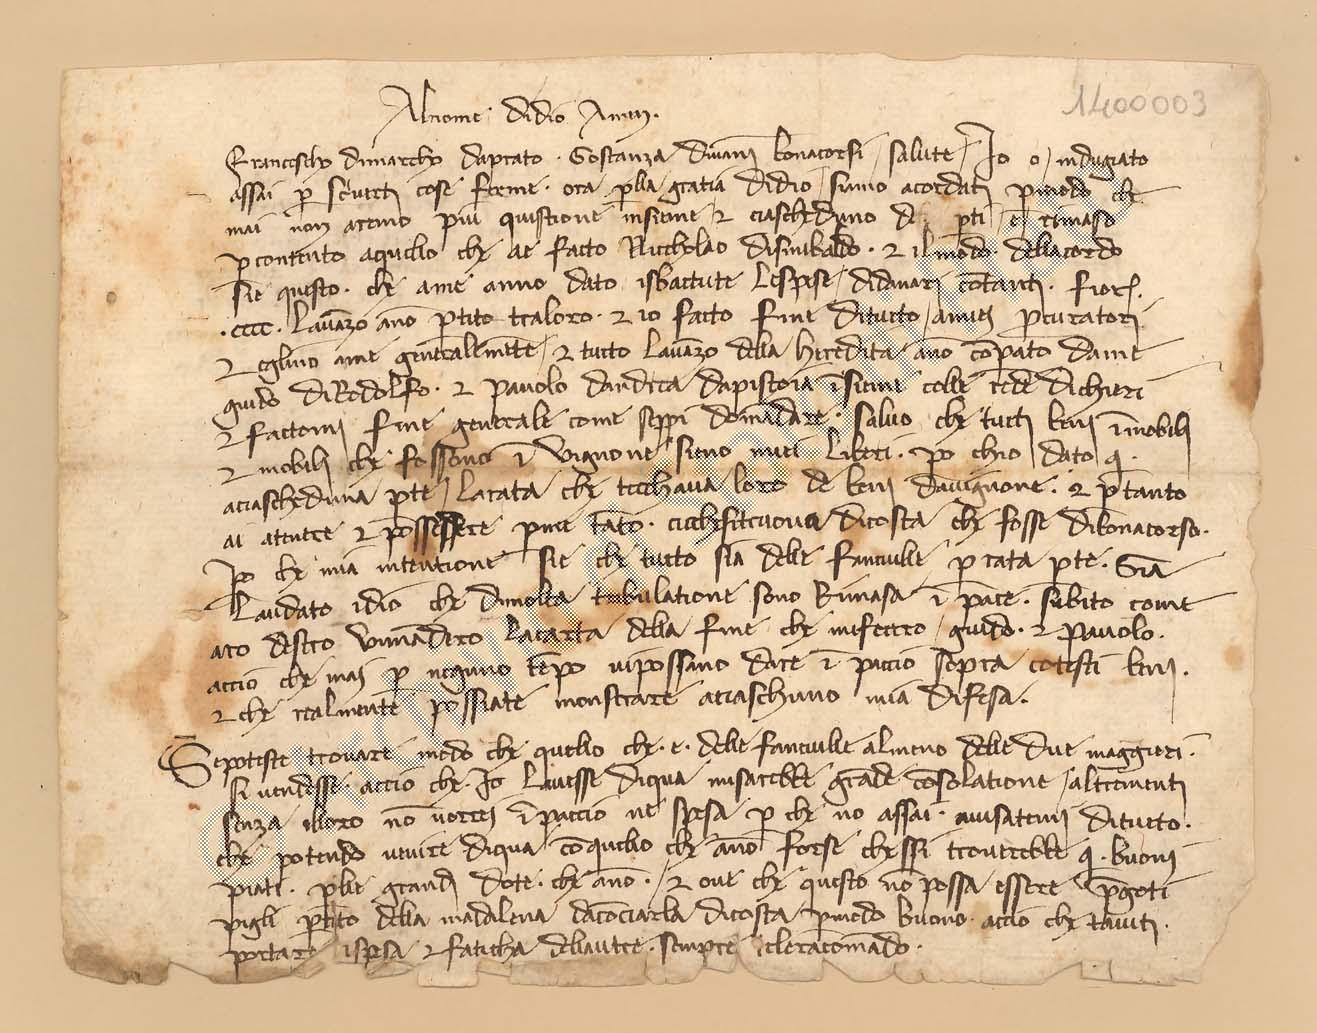 1400003
Al nome di dio Amen.
Francescho dimarcho daprato. Gostanza divanni bonacorsi salute. Io o indugiato
assai per scrivervi cose ferme. ora per la gratia didio siamo acordati per modo che
mai non aremo più quistione insieme & ciascheduno de parti e rimaso
per contento aquello che ae fatto Niccholao disinibaldo. & il modo dellacordo
sie questo. che ame anno dato isbattute lespese didanari contanti. fior.
.cccc. lavanzo ano partito traloro. & io fatto fine ditutto amiei procuratori
& eglino ame generalemente & tutto lavanzo della heredita ano comprato dame
guido diRidolfo. & pavolo dandrea dapistoia insieme colle rede dichieri
& fattomi fine generale come seppi domandare. salvo che tutti beni inmobili
& mobili che fossono in vignone sieno miei liberi. pero chio dato
aciascheduna parte larata che tocchava loro de beni davignone. & per tanto
ai atenere & possedere per me tanto. cioche si truova dicosta che fosse dibonacorso.
Pero che mia intentione sie che tutto sia delle fanciulle per rata parte. Sia
laudato idio che dimolta tribulatione sono rimasa in pace. subito come
aro destro vimandero lacarta della fine che mifecero guido. & pavolo.
accio che mai per neguno tempo vipossano dare inpaccio sopra cotesti beni.
& che realmente possiate monstrare aciaschuno mia difesa.
Se poteste trovare modo che quello che. e. delle fanciulle almeno delle due maggiori.
si vendesse. accio che Io lavesse diqua misarebbe grande consolatione altrementi
senza illoro non vorrei inpaccio ne spesa per che no assai. avisatemi ditutto.
che potendo venire diqua con quello che ano forse chessi troverebbe buoni
piati. per le grandi dote. che ano. & ove che questo non possa essere
pigli partito della madalena daconciarla dicosta per modo buono. accio che
portare ispesa & faticha dellautre. sempre